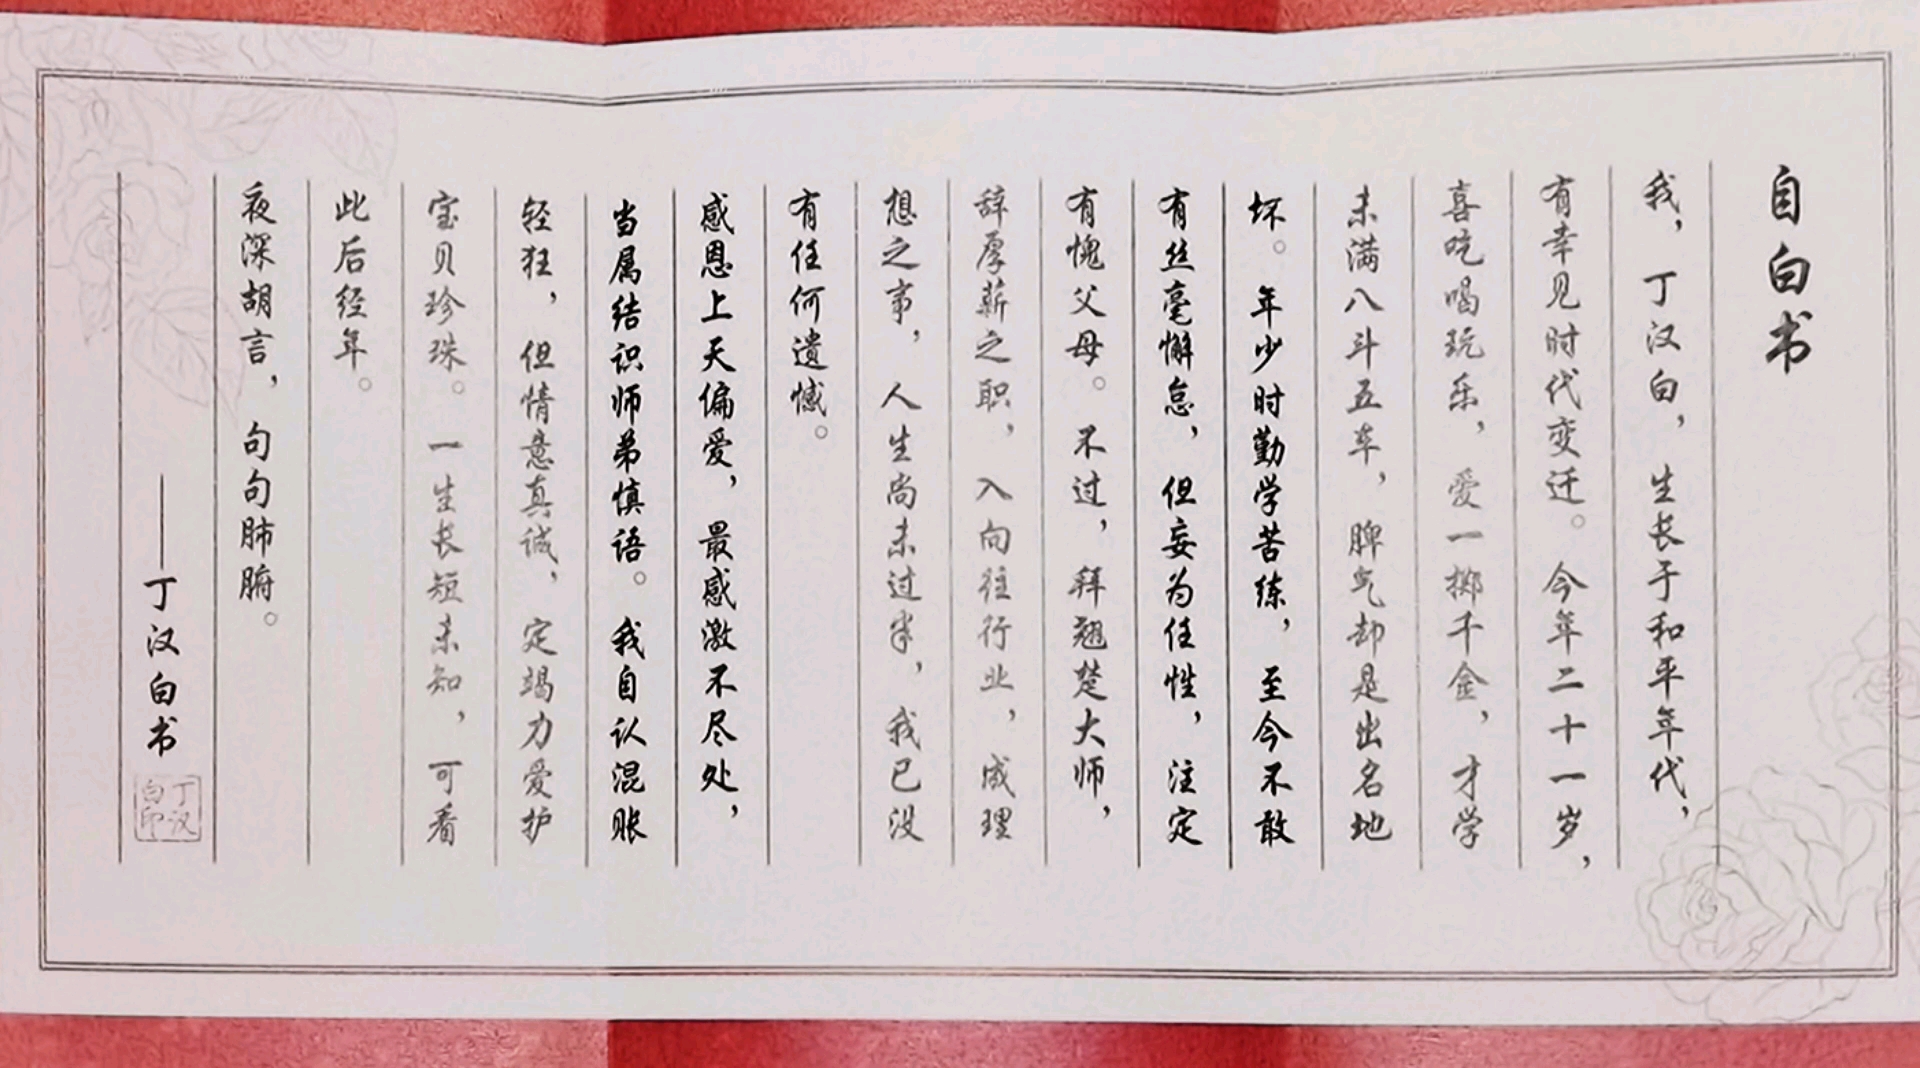 自白书
我，丁汉白，生长于和平年代，
有幸见时代变迁。今年二十一岁，
喜吃喝玩乐，爱一掷千金，才学
未满八斗五车，脾气却是出名地
坏。年少时勤学苦练，至今不敢
有丝毫懈怠，但妄为任性，注定
有愧父母。不过，拜翘楚大师，
辞厚薪之职，入向往行业，成理
想之事，人生尚未过半，我已没
有任何遗憾。
感恩上天偏爱，最感激不尽处，
当属结识师弟慎语。我自认混账
轻狂，但情意真诚，定竭力爱护
宝贝珍珠。一生长短未知，可看
此后经年。
夜深胡言，句句肺腑。
——丁汉白书
丁汉白印